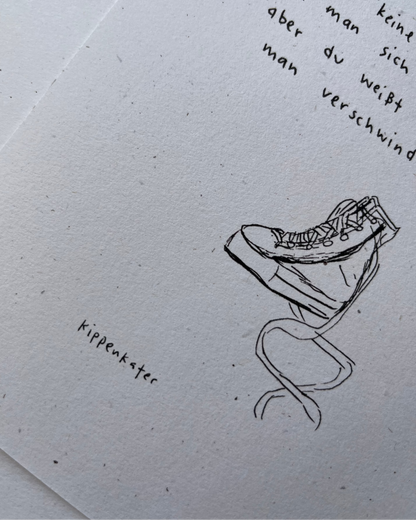 keine
man sich
aber du weißt
man verschwind
kippenkater